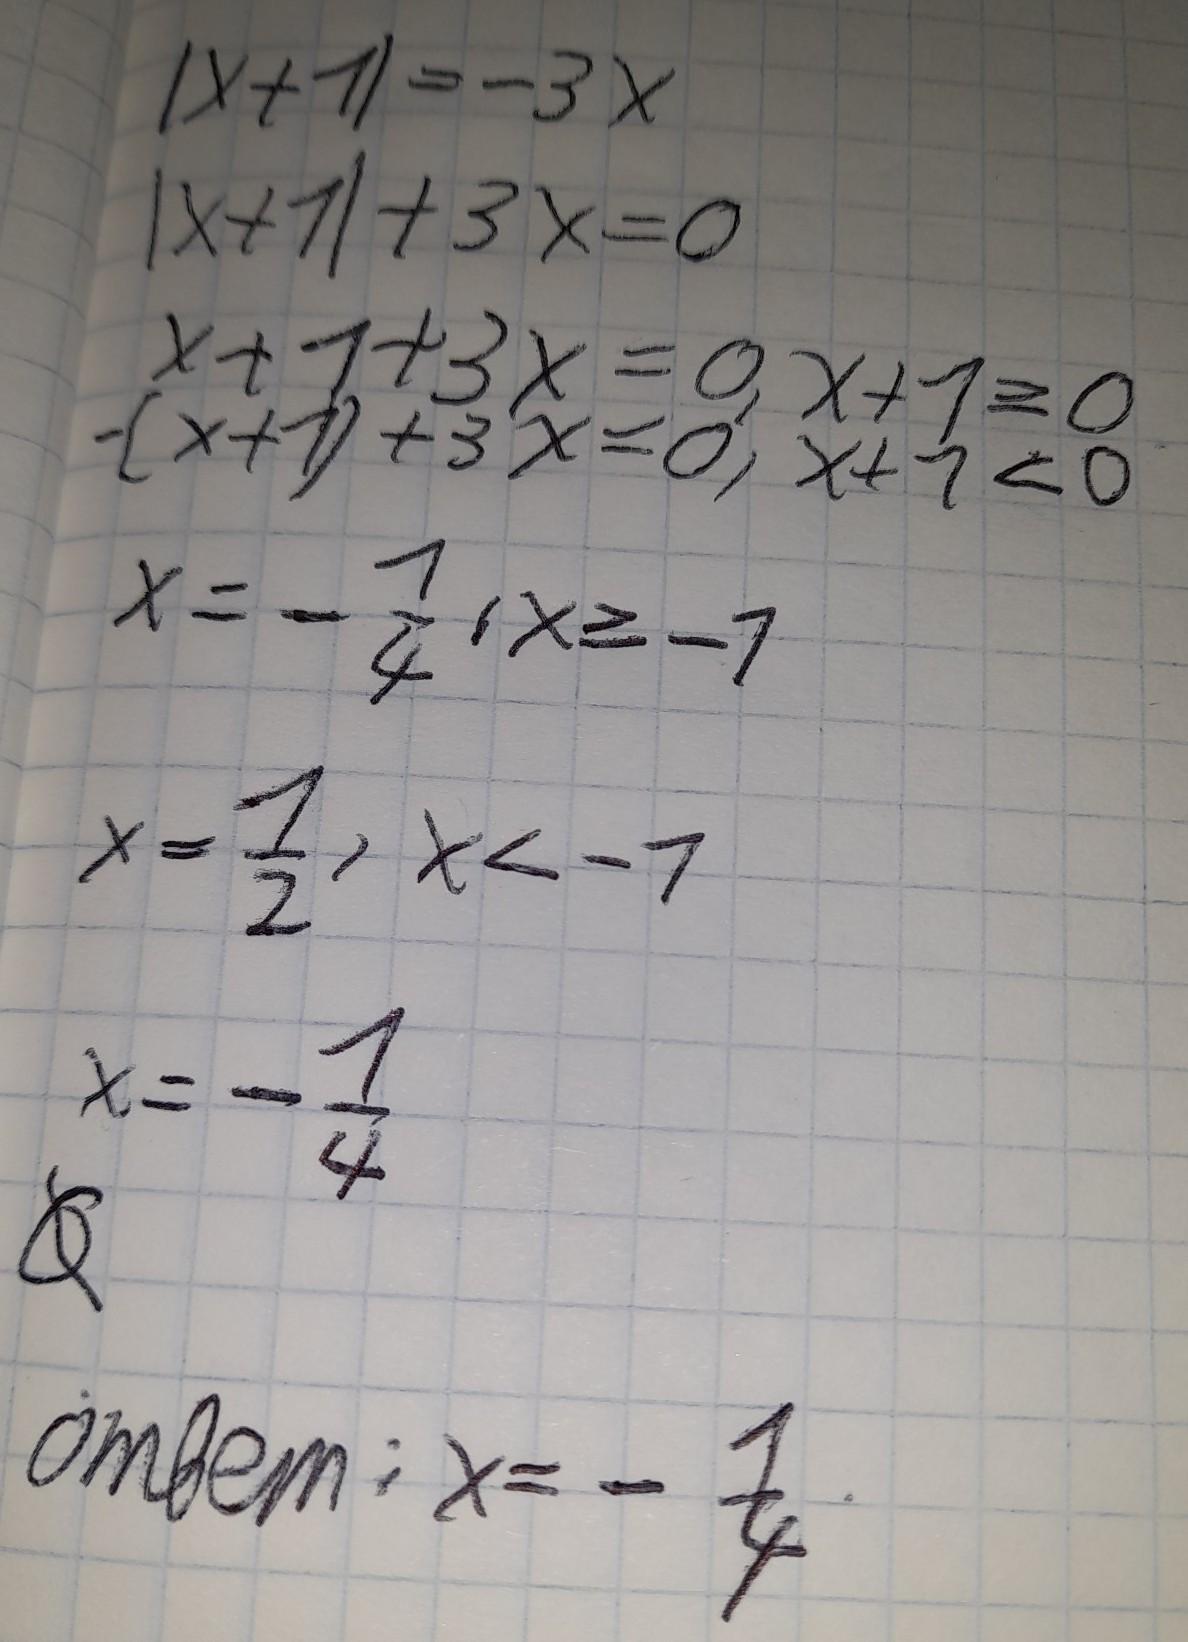 |x+1|=-3x
|x+1|+3x=0
x+1+3x=0, x+1≥0
-(x+1)+3x=0, x+1<0
x=-1/4, x≥-1
x=1/2, x<-1
x=-1/4
ответ: x=-1/4